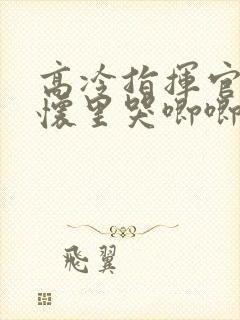 高冷指揮官
懷里哭唧唧
飛翼